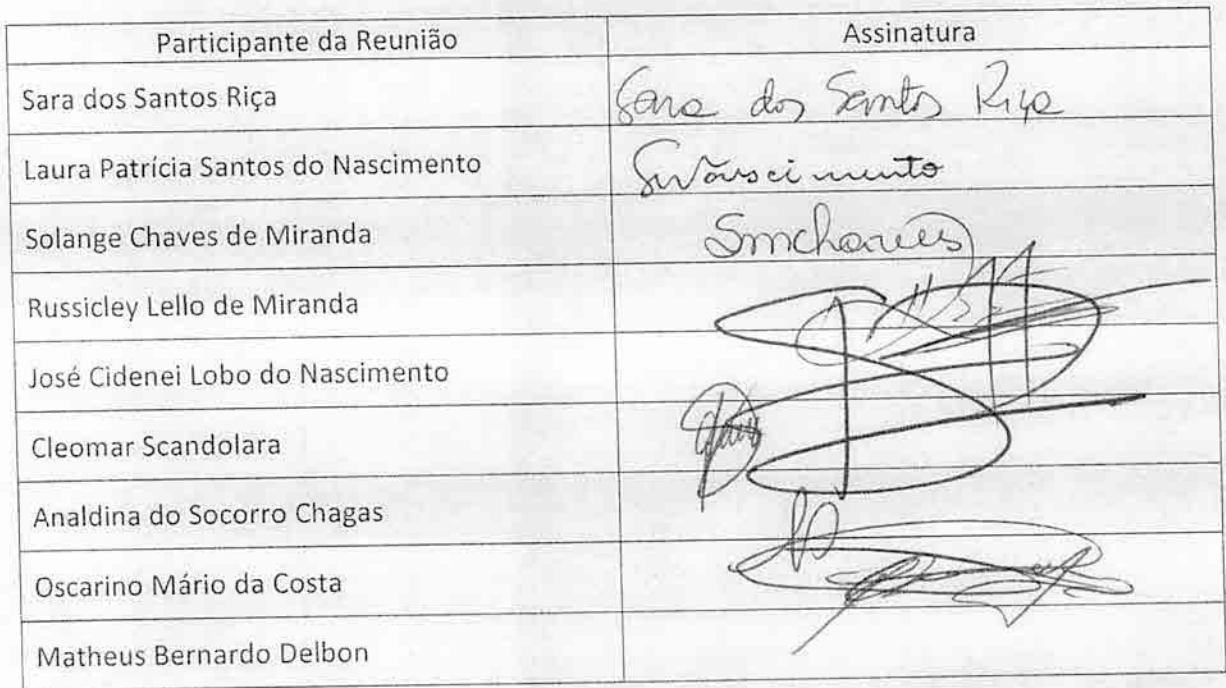 Participante da Reunião Assinatura
Sara dos Santos Riça Sara dos Santos Riça
Laura Patrícia Santos do Nascimento
Solange Chaves de Miranda
Russicley Lello de Miranda
José Cidenei Lobo do Nascimento
Cleomar Scandolara
Analdina do Socorro Chagas
Oscarino Mário da Costa
Matheus Bernardo Delbon